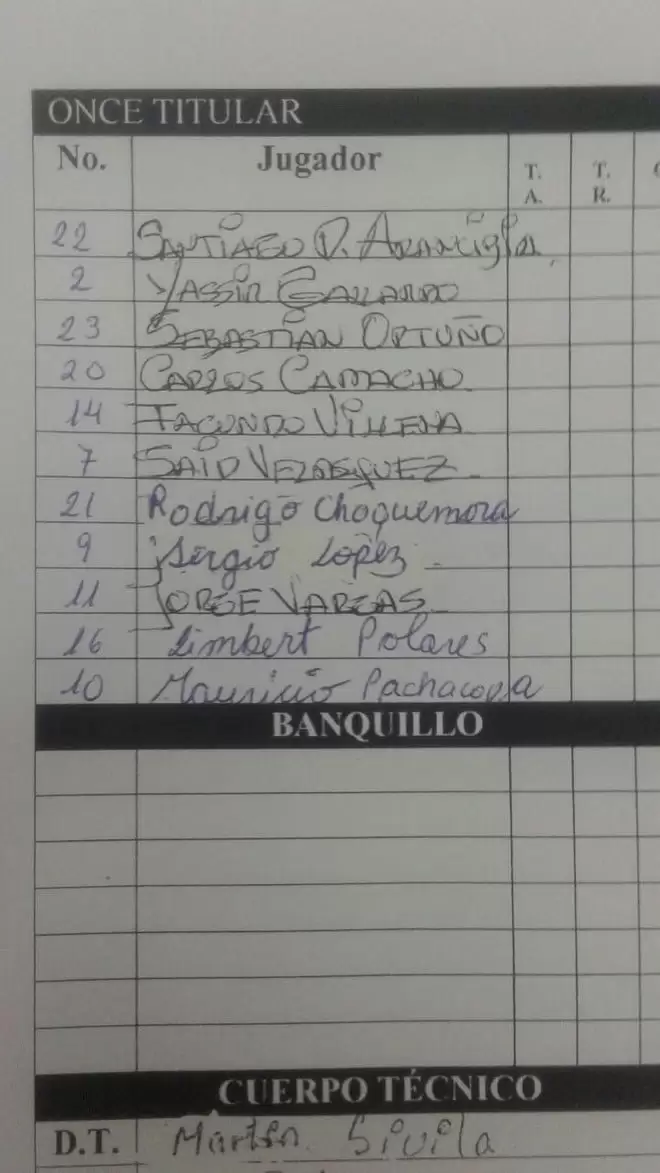 ONCE TITULAR
No. Jugador T. A. T. R.
22 SANTIAGO D.
2 YASSIR GALLARDO
23 SEBASTIAN ORTUÑO
20 CARLOS CAMACHO
14 FACUNDO VILLENA
7 SAID VELASQUEZ
21 Rodrigo Choquemora
9 Sergio Lopez
11 JORGE VARGAS
16 Limbert Polares
10 Mauricio
BANQUILLO
CUERPO TÉCNICO
D.T. Martin Sivila